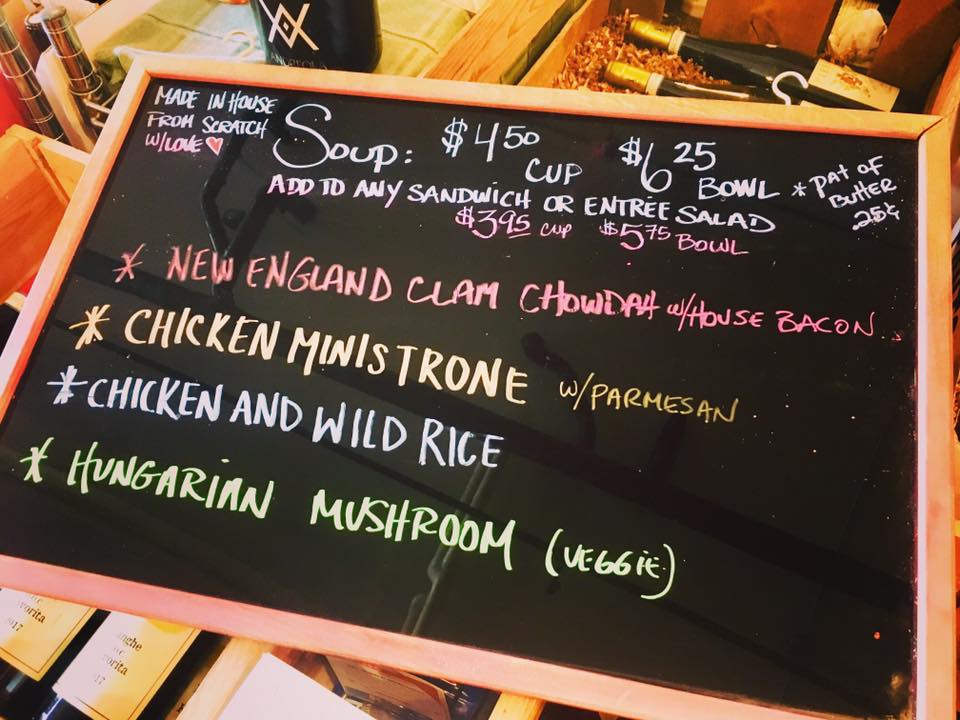 MADE IN HOUSE
FROM SCRATCH
W/LOVE
SOUP: $4.50 CUP $6.25 BOWL
* PAT OF
BUTTER
25¢
ADD TO ANY SANDWICH OR ENTRÉE SALAD
$3.95 CUP $5.75 BOWL
* NEW ENGLAND CLAM CHOWDAH W/HOUSE BACON
* CHICKEN MINISTRONE W/PARMESAN
* CHICKEN AND WILD RICE
* HUNGARIAN MUSHROOM (VEGGIE)